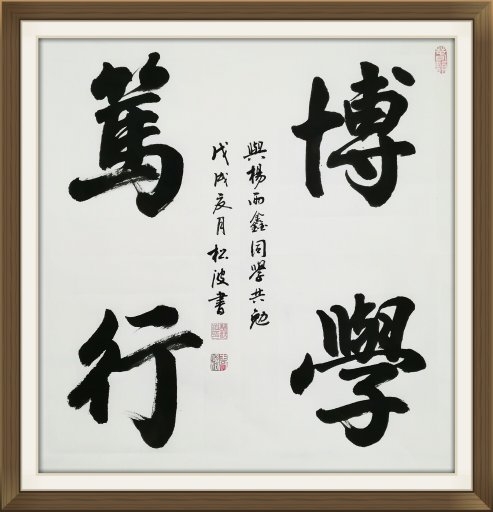 博學
篤行
與楊雨鑫同學共勉
戊戌夏月松波書